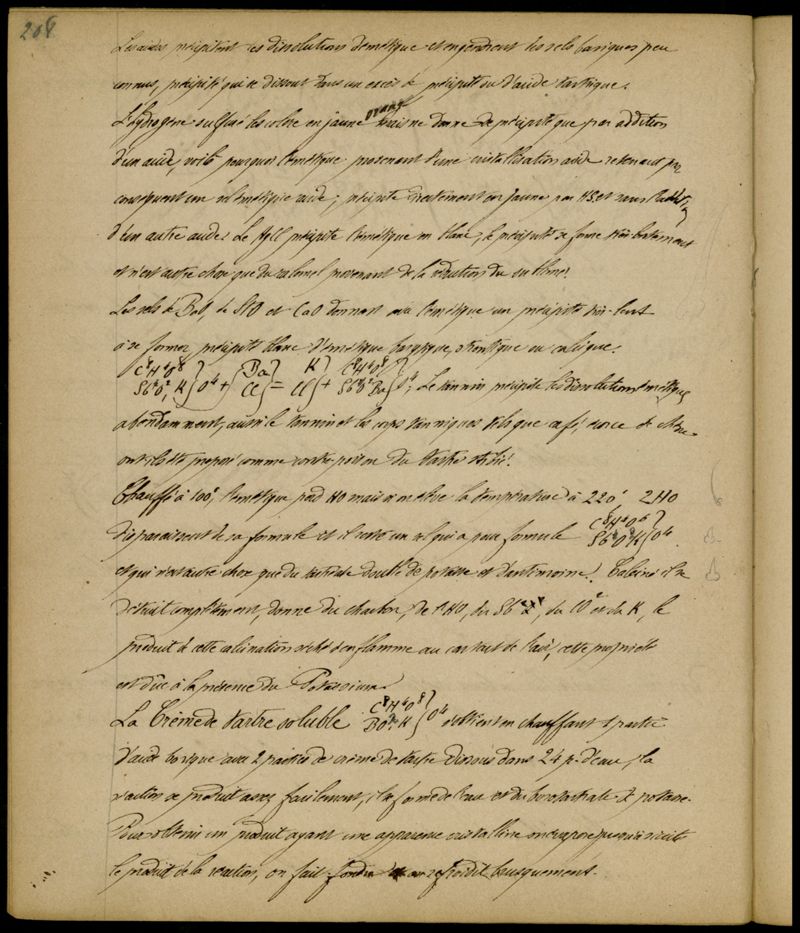 208
Les acides précipitent les dissolutions d'émétique et engendrent des sels basiques peu
connus, précipité qui se dissout dans un excès de précipité ou d'acide tartrique.
L'hydrogène sulfuré les colore en jaune orangé mais ne donne de précipité que par addition
d'un acide, voilà pourquoi l'émétique provenant d'une cristallisation acide retenant par
conséquent un sel émétique acide, précipite directement en jaune par HS et sans l'addition
d'un autre acide. Le HgCl précipite l'émétique en blanc, le précipité se forme très lentement
et n'est autre chose que du calomel provenant de la réduction du sublimé.
Les sels de BaO, de StO et CaO donnent avec l'émétique un précipité très lent
à se former, précipité blanc d'émétique barytique, strontique ou calcique.
C⁸H⁴O⁸ } Ba } K } C⁸H⁴O⁸ }
Sb²O², K } O⁴ + Cl } = Cl } + Sb²O² Ba } O⁴. Le tannin précipite les dissolutions émétiques
abondamment, aussi le tannin et les corps tanniques tels que café, écorce de chêne
ont-ils été proposé comme contre-poison du tartre stibié.
Chauffé à 100°, l'émétique perd HO mais si on élève la température à 220° 2HO
disparaissent de sa formule et il reste un sel qui a pour formule C⁸H⁴O⁶ } Sb²O² K } O⁴
et qui n'est autre chose que du tartrate double de potasse et d'antimoine. Calciné il se
détruit complètement, donne du charbon, de l'HO, du Sb, du CO² et du K, le
produit de cette calcination s'enflamme au contact de l'air, cette propriété
est dûe à la présence du Potassium.
La Crème de tartre soluble C⁸H⁴O⁸ } BO² K } O⁴ s'obtient en chauffant 1 partie
d'acide borique avec 2 parties de crème de tartre dissous dans 24 p. d'eau, la
réaction se produit assez facilement, il se forme de l'eau et du borotartrate de potasse.
Pour obtenir un produit ayant une apparence cristalline on évapore jusqu'à siccité
le produit de la réaction, on fait fondre et on refroidit brusquement.